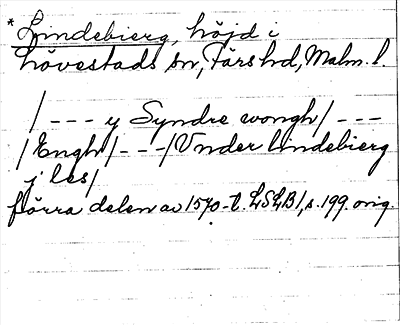 *Lindebierg, höjd i
hövestads sn, Färs hd, Malm. l.
/--- y Syndre wongh/---
/Engh/---/Vnder lindebierg
j les/
förra delen av 1570-t. LSLB1, s. 199. orig.